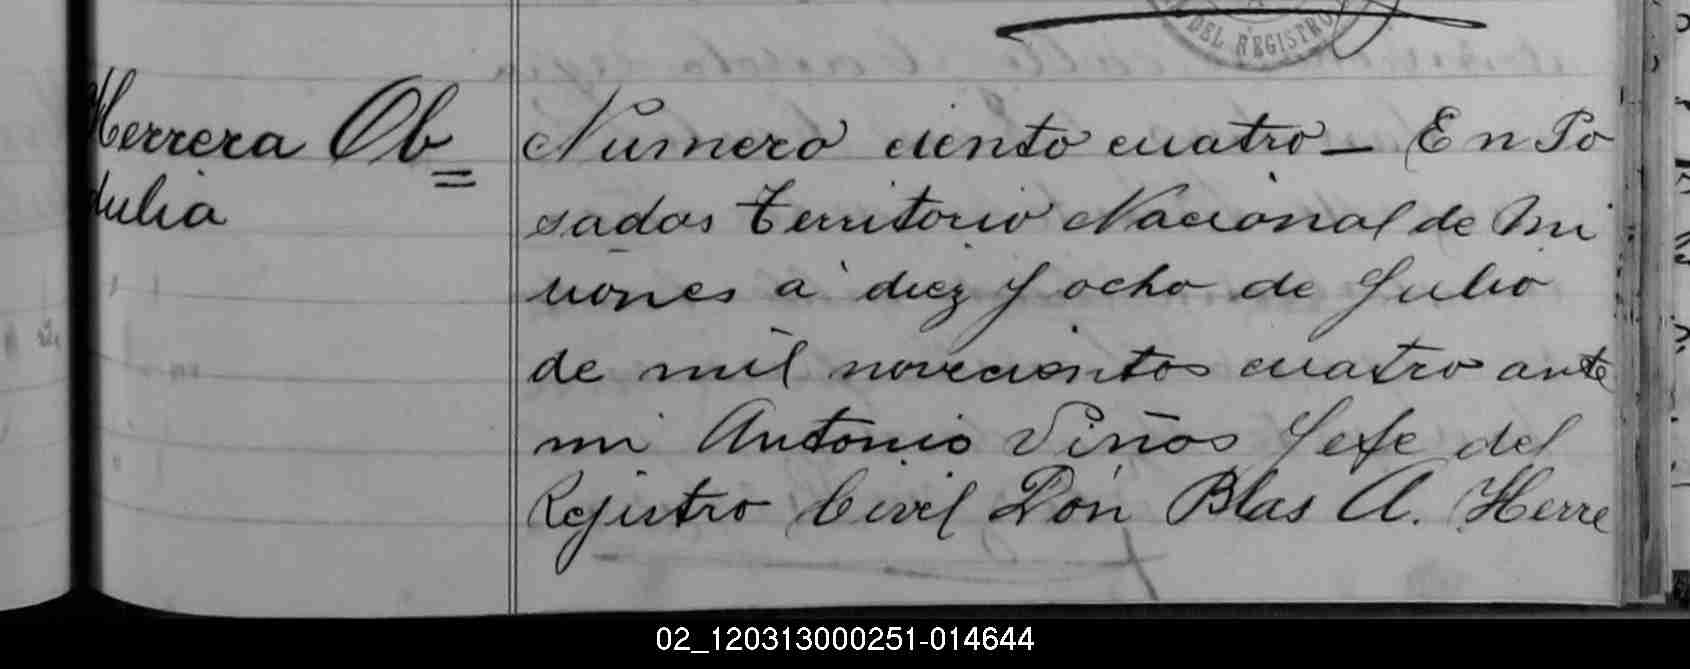 DEL REGISTRO
Herrera Ob=
dulia
Número ciento cuatro — En Po
sadas Territorio Nacional de Mi
siones a diez y ocho de Julio
de mil novecientos cuatro ante
mi Antonio Viños Jefe del
Rejistro Civil Don Blas A. Herre
02_120313000251-014644